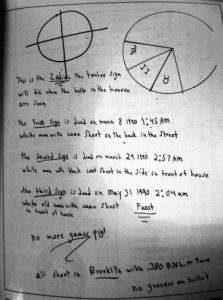 This is the Zodiac the twelve sign
will die when the belts in the heaven
are seen
the First Sign is dead on march 8 1990 1:45 AM
white man with cane shoot on the back in the street
the Second Sign is dead on march 29 1990 2:57 AM
white man with black coat shoot in the side in front of house
the third Sign is dead on May 31 1990 2:04 am
white old man with cane shoot
in front of house
Faust
no more games pigs
all shoot in Brooklyn with .380 RNL or 9mm
no grooves on bullet